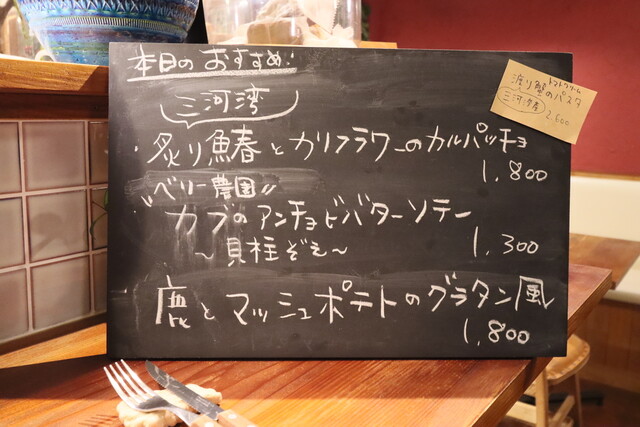 本日のおすすめ!
三河湾
・炙り鰆とカリフラワーのカルパッチョ
1,800
"ベリー農園"
カブのアンチョビバターソテー
〜貝柱ぞえ〜
1,300
鹿とマッシュポテトのグラタン風
1,800
トマトクリーム
渡り蟹のパスタ
三河湾産
2,600